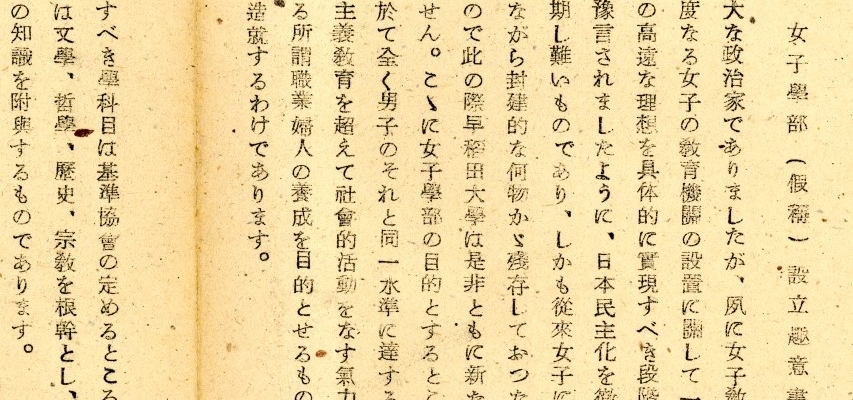 女子學部（假稱）設立趣意書
大な政治家でありましたが、夙に女子敎
度なる女子の敎育機關の設置に關して一
の高遠な理想を具体的に實現すべき段階
豫言されましたように、日本民主化を徹
期し難いものであり、しかも從來女子に
ながら封建的な何物かゞ殘存しておつた
ので此の際早稻田大學は是非ともに新た
せん。こゝに女子學部の目的とするとこ
於て全く男子のそれと同一水準に達する
主義敎育を超えて社會的活動をなす氣力
る所謂職業婦人の養成を目的とせるもの
造就するわけであります。
すべき學科目は基準協會の定めるところ
は文學、哲學、歷史、宗敎を根幹とし、
の知識を附與するものであります。